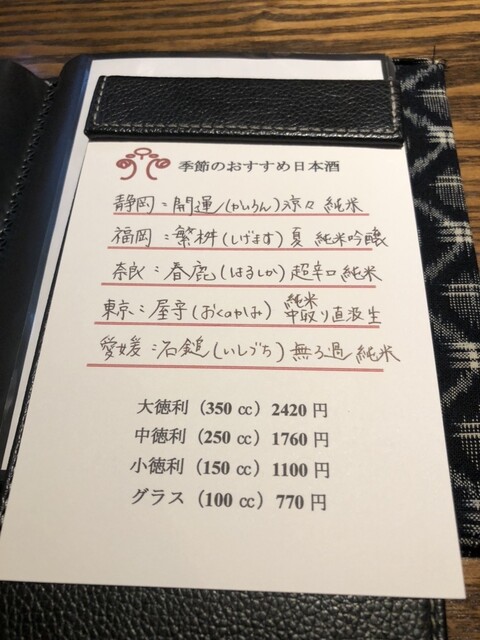 季節のおすすめ日本酒
静岡：開運(かいうん)涼々 純米
福岡：繁桝(しげます)夏 純米吟醸
奈良：春鹿(はるしか)超辛口 純米
東京：屋守(おくのかみ)純米中取り直汲生
愛媛：石鎚(いしづち)無ろ過 純米
大徳利（350 cc）2420 円
中徳利（250 cc）1760 円
小徳利（150 cc）1100 円
グラス（100 cc）770 円